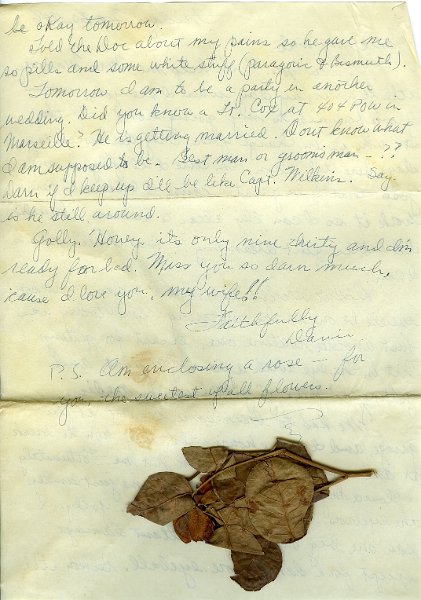 be okay tomorrow.
Told the Doc about my pains so he gave me
so pills and some white stuff (paragoric & Basmuth).
Tomorrow I am to be a party in another
wedding. Did you know a Lt. Cox at 404 POW in
Marseille? He is getting married. Dont know what
I am supposed to be. Best man or grooms man - ??
Darn if I keep up I'll be like Capt. Wilkins. Say-
is he still around.
Golly, Honey its only nine thirty and I'm
ready for bed. Miss you so darn much,
'cause I love you, my wife!!
Faithfully
P.S. Am enclosing a rose — for
you, the sweetest of all flowers.